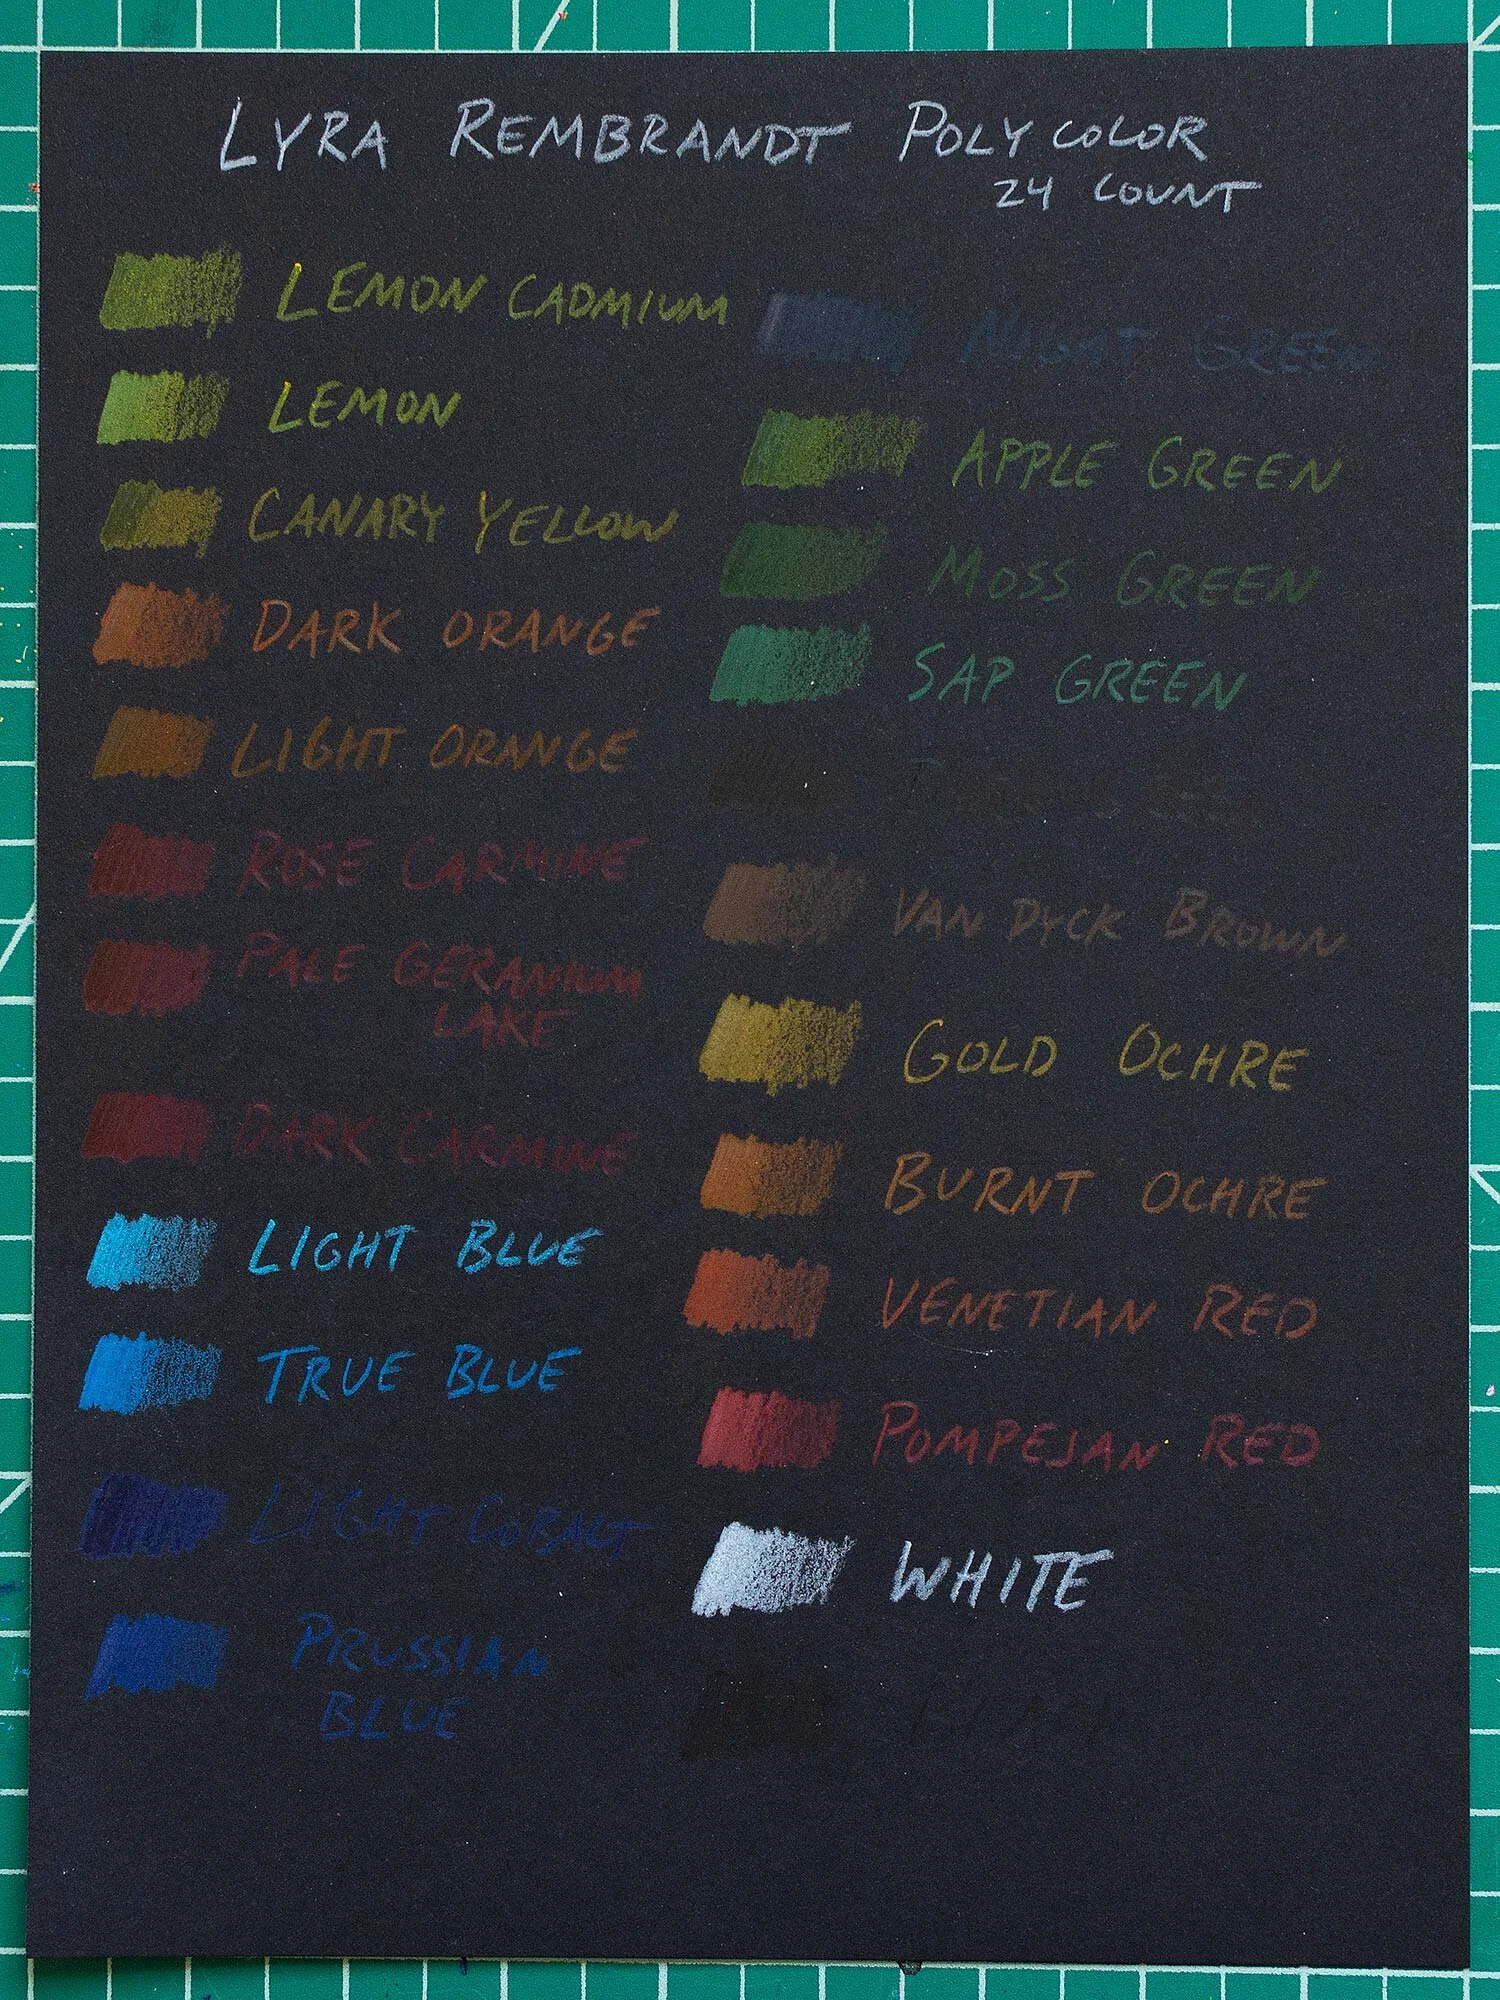 LYRA REMBRANDT POLYCOLOR
24 COUNT
LEMON CADMIUM
LEMON
CANARY YELLOW
DARK ORANGE
LIGHT ORANGE
ROSE CARMINE
PALE GERANIUM
LAKE
DARK CARMINE
LIGHT BLUE
TRUE BLUE
LIGHT COBALT
PRUSSIAN
BLUE
NIGHT GREEN
APPLE GREEN
MOSS GREEN
SAP GREEN
VAN DYCK BROWN
GOLD OCHRE
BURNT OCHRE
VENETIAN RED
POMPEJAN RED
WHITE